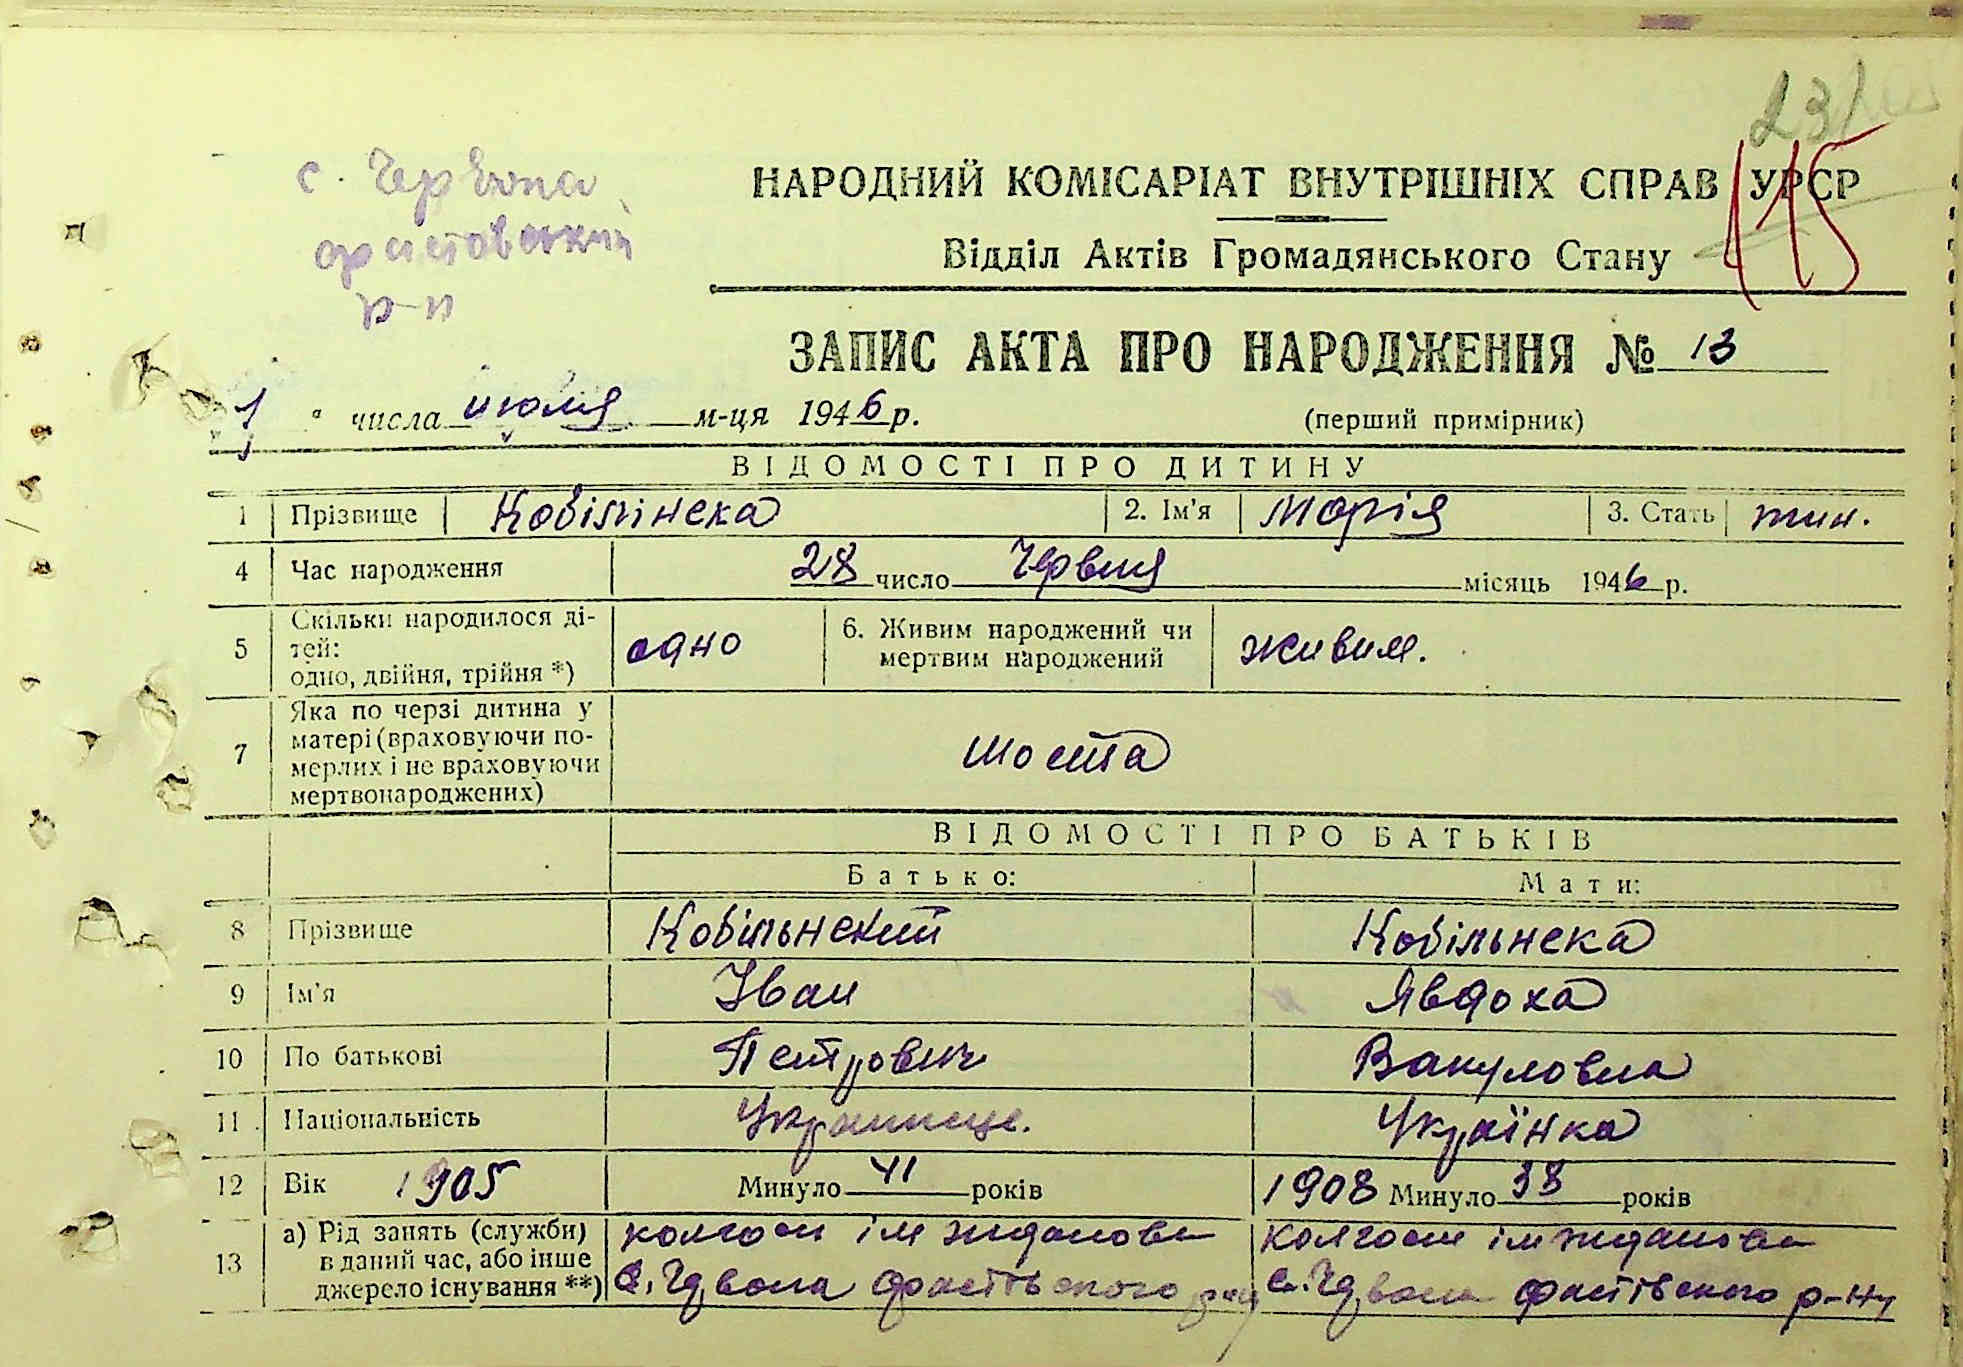 23/
115
с. Червона
фастовский
р-н
НАРОДНИЙ КОМІСАРІАТ ВНУТРІШНІХ СПРАВ УРСР
Відділ Актів Громадянського Стану
ЗАПИС АКТА ПРО НАРОДЖЕННЯ № 13
1 " числа июля м-ця 1946 р. (перший примірник)
ВІДОМОСТІ ПРО ДИТИНУ
1 Прізвище Кобілінска 2. Ім'я Марія 3. Стать жин.
4 Час народження 28 число Червня місяць 1946 р.
5 Скільки народилося ді-
тей:
одно, двійня, трійня *) одно 6. Живим народжений чи
мертвим народжений живим.
7 Яка по черзі дитина у
матері (враховуючи по-
мерлих і не враховуючи
мертвонароджених) шоста
ВІДОМОСТІ ПРО БАТЬКІВ
Батько: Мати:
8 Прізвище Кобільнский Кобільнска
9 Ім'я Іван Явдоха
10 По батькові Петрович Вакуловна
11 Національність Украинец. Українка
12 Вік 1905 Минуло 41 років 1908 Минуло 38 років
13 а) Рід занять (служби)
в даний час, або інше
джерело існування **)
колгосп ім жданова
с. Чрвона фастівского р-ну
колгосп ім жданова
с. Чрвона фастівского р-ну